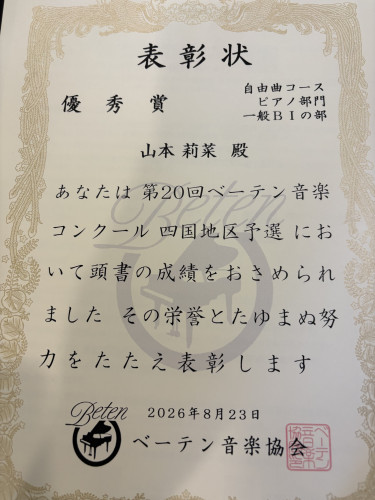 表彰状
優秀賞
自由曲コース
ピアノ部門
一般BⅠの部
山本 莉菜 殿
あなたは 第20回ベーテン音楽
コンクール 四国地区予選 にお
いて頭書の成績をおさめられ
ました その栄誉とたゆまぬ努
力をたたえ表彰します
Beten
Beten
2026年8月23日
ベーテン音楽協会
ベーテン音楽協会